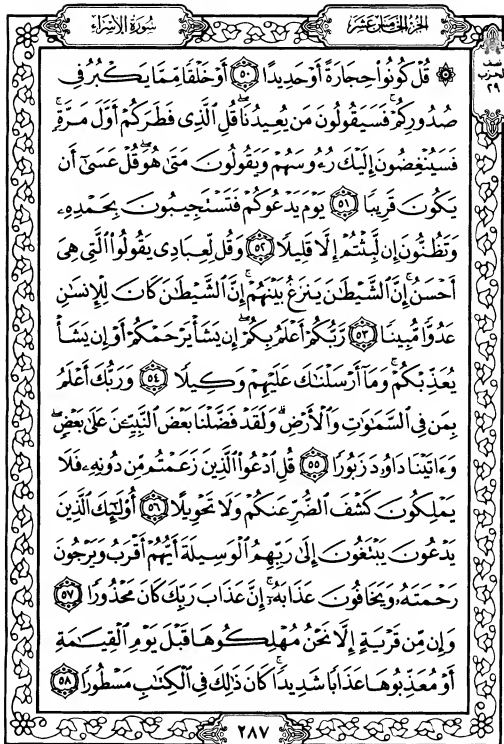 سورة الإسراء
الجزء الخامس عشر
نصف
الحزب
٢٩
۞ قُلْ كُونُوا۟ حِجَارَةً أَوْ حَدِيدًا ٥٠ أَوْ خَلْقًا مِّمَّا يَكْبُرُ فِى
صُدُورِكُمْ ۚ فَسَيَقُولُونَ مَن يُعِيدُنَا ۖ قُلِ ٱلَّذِى فَطَرَكُمْ أَوَّلَ مَرَّةٍ ۚ
فَسَيُنْغِضُونَ إِلَيْكَ رُءُوسَهُمْ وَيَقُولُونَ مَتَىٰ هُوَ ۖ قُلْ عَسَىٰٓ أَن
يَكُونَ قَرِيبًا ٥١ يَوْمَ يَدْعُوكُمْ فَتَسْتَجِيبُونَ بِحَمْدِهِۦ
وَتَظُنُّونَ إِن لَّبِثْتُمْ إِلَّا قَلِيلًا ٥٢ وَقُل لِّعِبَادِى يَقُولُوا۟ ٱلَّتِى هِىَ
أَحْسَنُ ۚ إِنَّ ٱلشَّيْطَٰنَ يَنزَغُ بَيْنَهُمْ ۚ إِنَّ ٱلشَّيْطَٰنَ كَانَ لِلْإِنسَٰنِ
عَدُوًّا مُّبِينًا ٥٣ رَّبُّكُمْ أَعْلَمُ بِكُمْ ۖ إِن يَشَأْ يَرْحَمْكُمْ أَوْ إِن يَشَأْ
يُعَذِّبْكُمْ ۚ وَمَآ أَرْسَلْنَٰكَ عَلَيْهِمْ وَكِيلًا ٥٤ وَرَبُّكَ أَعْلَمُ
بِمَن فِى ٱلسَّمَٰوَٰتِ وَٱلْأَرْضِ ۗ وَلَقَدْ فَضَّلْنَا بَعْضَ ٱلنَّبِيِّـۧنَ عَلَىٰ بَعْضٍ ۖ
وَءَاتَيْنَا دَاوُۥدَ زَبُورًا ٥٥ قُلِ ٱدْعُوا۟ ٱلَّذِينَ زَعَمْتُم مِّن دُونِهِۦ فَلَا
يَمْلِكُونَ كَشْفَ ٱلضُّرِّ عَنكُمْ وَلَا تَحْوِيلًا ٥٦ أُو۟لَٰٓئِكَ ٱلَّذِينَ
يَدْعُونَ يَبْتَغُونَ إِلَىٰ رَبِّهِمُ ٱلْوَسِيلَةَ أَيُّهُمْ أَقْرَبُ وَيَرْجُونَ
رَحْمَتَهُۥ وَيَخَافُونَ عَذَابَهُۥٓ ۚ إِنَّ عَذَابَ رَبِّكَ كَانَ مَحْذُورًا ٥٧
وَإِن مِّن قَرْيَةٍ إِلَّا نَحْنُ مُهْلِكُوهَا قَبْلَ يَوْمِ ٱلْقِيَٰمَةِ
أَوْ مُعَذِّبُوهَا عَذَابًا شَدِيدًا ۚ كَانَ ذَٰلِكَ فِى ٱلْكِتَٰبِ مَسْطُورًا ٥٨
٢٨٧